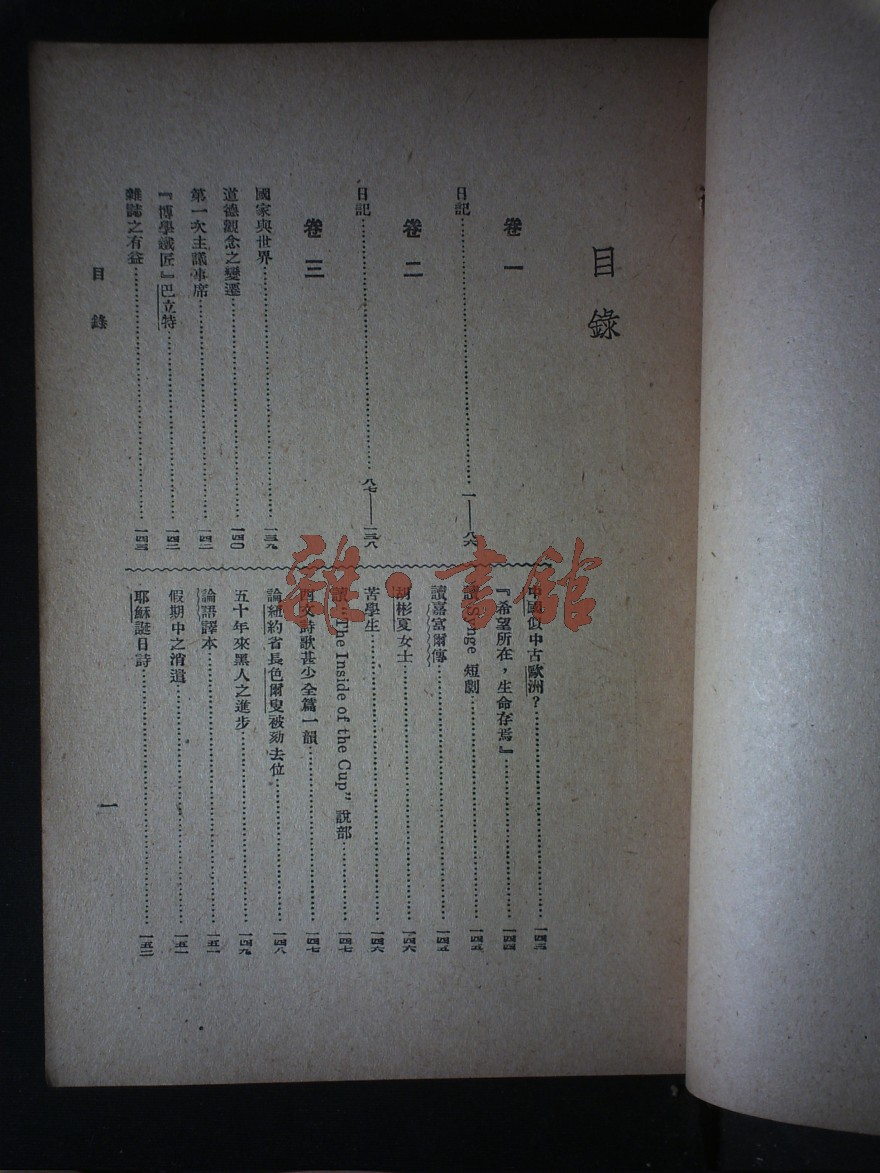 目錄
卷一
日記……一——八六
卷二
日記……八七——一三八
卷三
國家與世界……一三九
道德觀念之變遷……一四〇
第一次主議事席……一四二
『博學鐵匠』巴立特……一四二
雜誌之有益……一四三
中國似中古歐洲？……一四三
『希望所在，生命存焉』……一四四
讀 Synge 短劇……一四五
讀嘉富爾傳……一四五
胡彬夏女士……一四六
苦學生……一四六
讀 "The Inside of the Cup" 說部……一四七
西文詩歌甚少全篇一韻……一四七
論紐約省長色爾叟被劾去位……一四八
五十年來黑人之進步……一四九
論語譯本……一五一
假期中之消遣……一五一
耶穌誕日詩……一五二
目錄
一
雜·書館